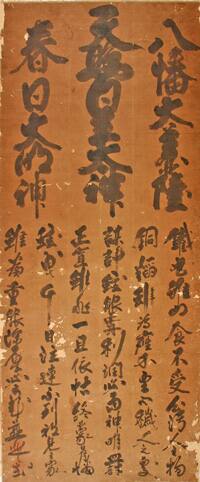 八幡大菩薩
天照皇太神
春日大明神
鐵丸雖為食不受心汚人物
銅焔雖為座不至心穢人之處
謀計雖眼前利潤必当神明罸
正直雖非一旦依怙終蒙日月憐
雖曳千日注連不到邪見家
雖為重服深厚